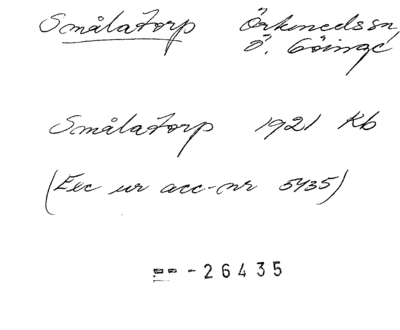 Smålatorp Örkenedssn,
Ö. Göinge
Smålatorp 1921 Kb
(Exc ur acc-nr 5435)
== -26435